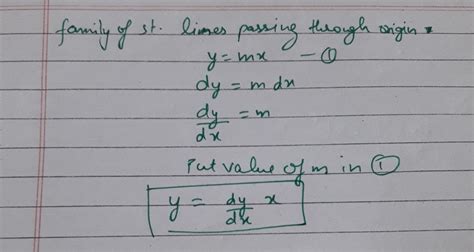 family of st. lines passing through origin
y = mx – ①
dy = m dx
dy/dx = m
Put value of m in ①
y = dy/dx x